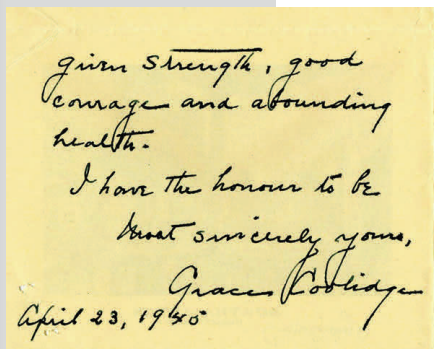 given strength, good
courage and abounding
health.
I have the honour to be
Most sincerely yours,
Grace Coolidge
April 23, 1945